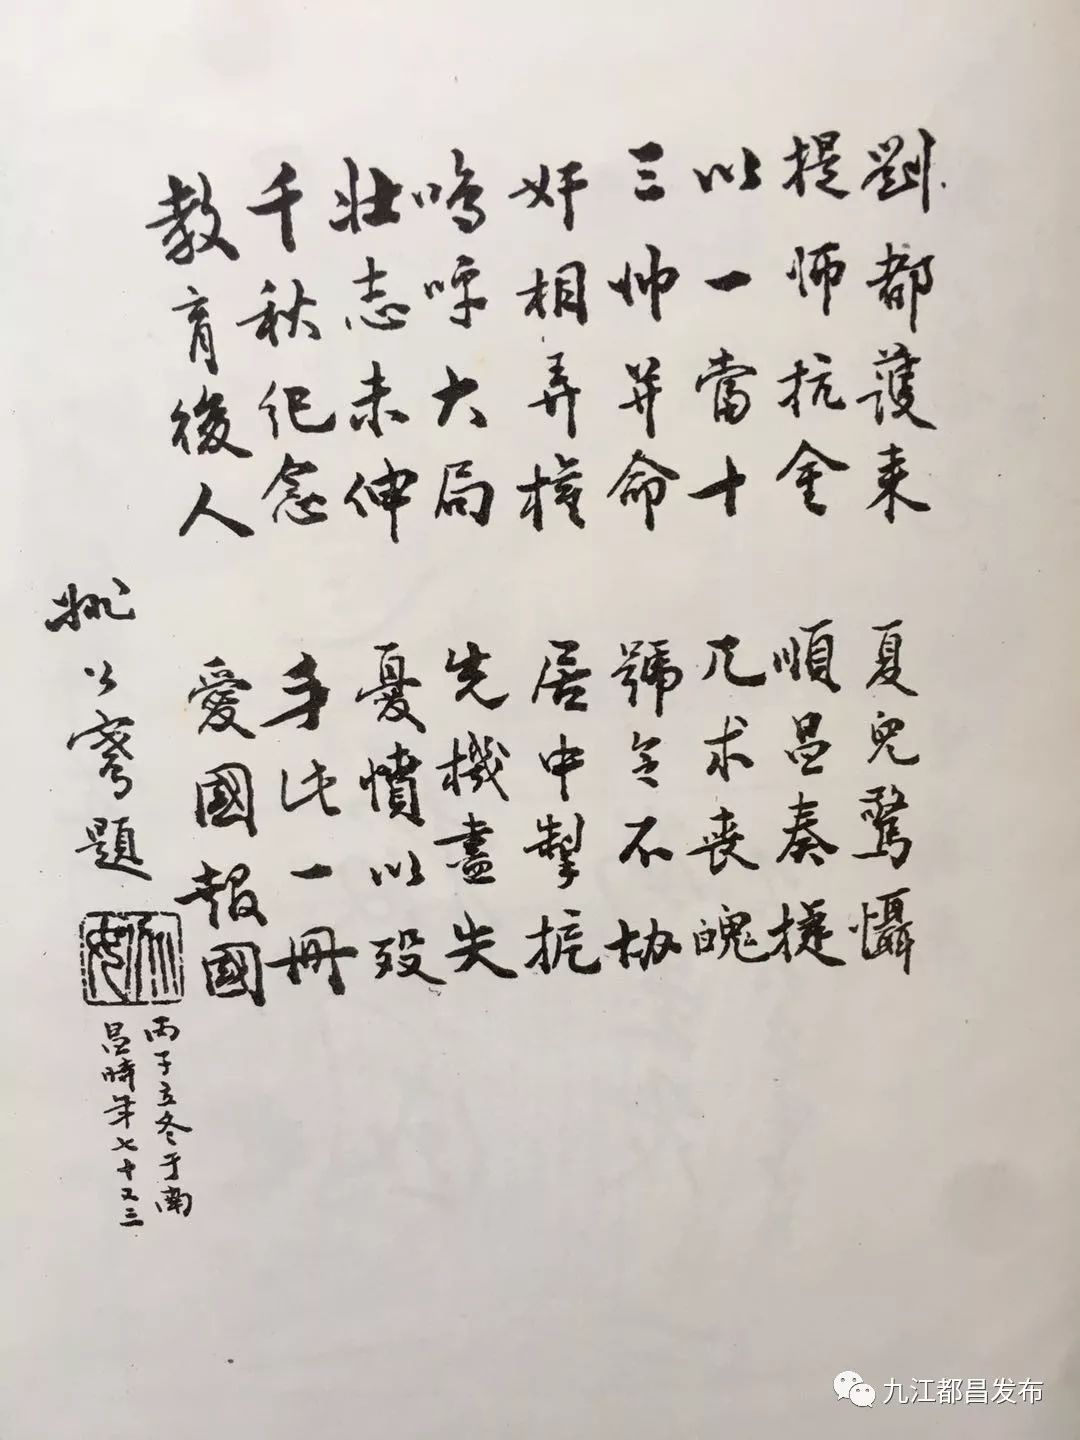 劉都護来 夏兒驚懾
提师抗金 順昌奏捷
以一當十 兀求喪魄
三帅并命 號令不协
奸相弄權 居中掣
嗚呼大局 先機盡失
壮志未伸 憂憤以殁
千秋纪念 手此一冊
教育後人 愛國報國
姚公騫題
丙子立冬于南
昌時年七十又三
九江都昌发布